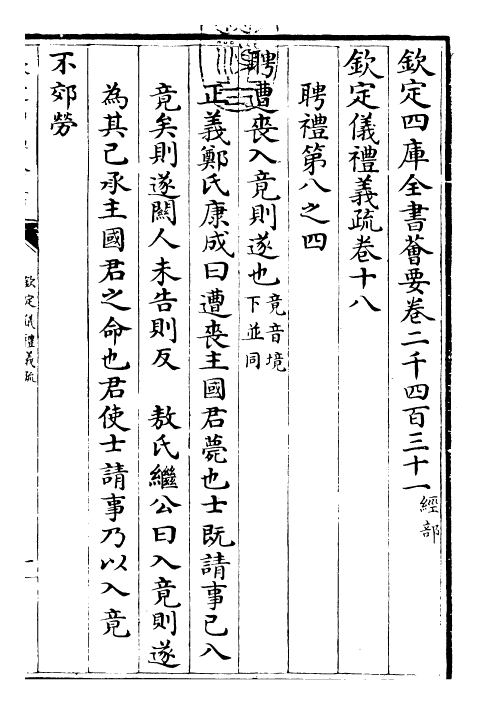 欽定四庫全書薈要卷二千四百三十一
經部
欽定儀禮義疏卷十八
聘禮第八之四
聘遭喪入竟則遂也
竟音境
下並同
正義鄭氏康成曰遭喪主國君薨也士既請事已入
竟矣則遂闗人未告則反　敖氏繼公曰入竟則遂
為其已承主國君之命也君使士請事乃以入竟
不郊勞
欽定儀禮義疏